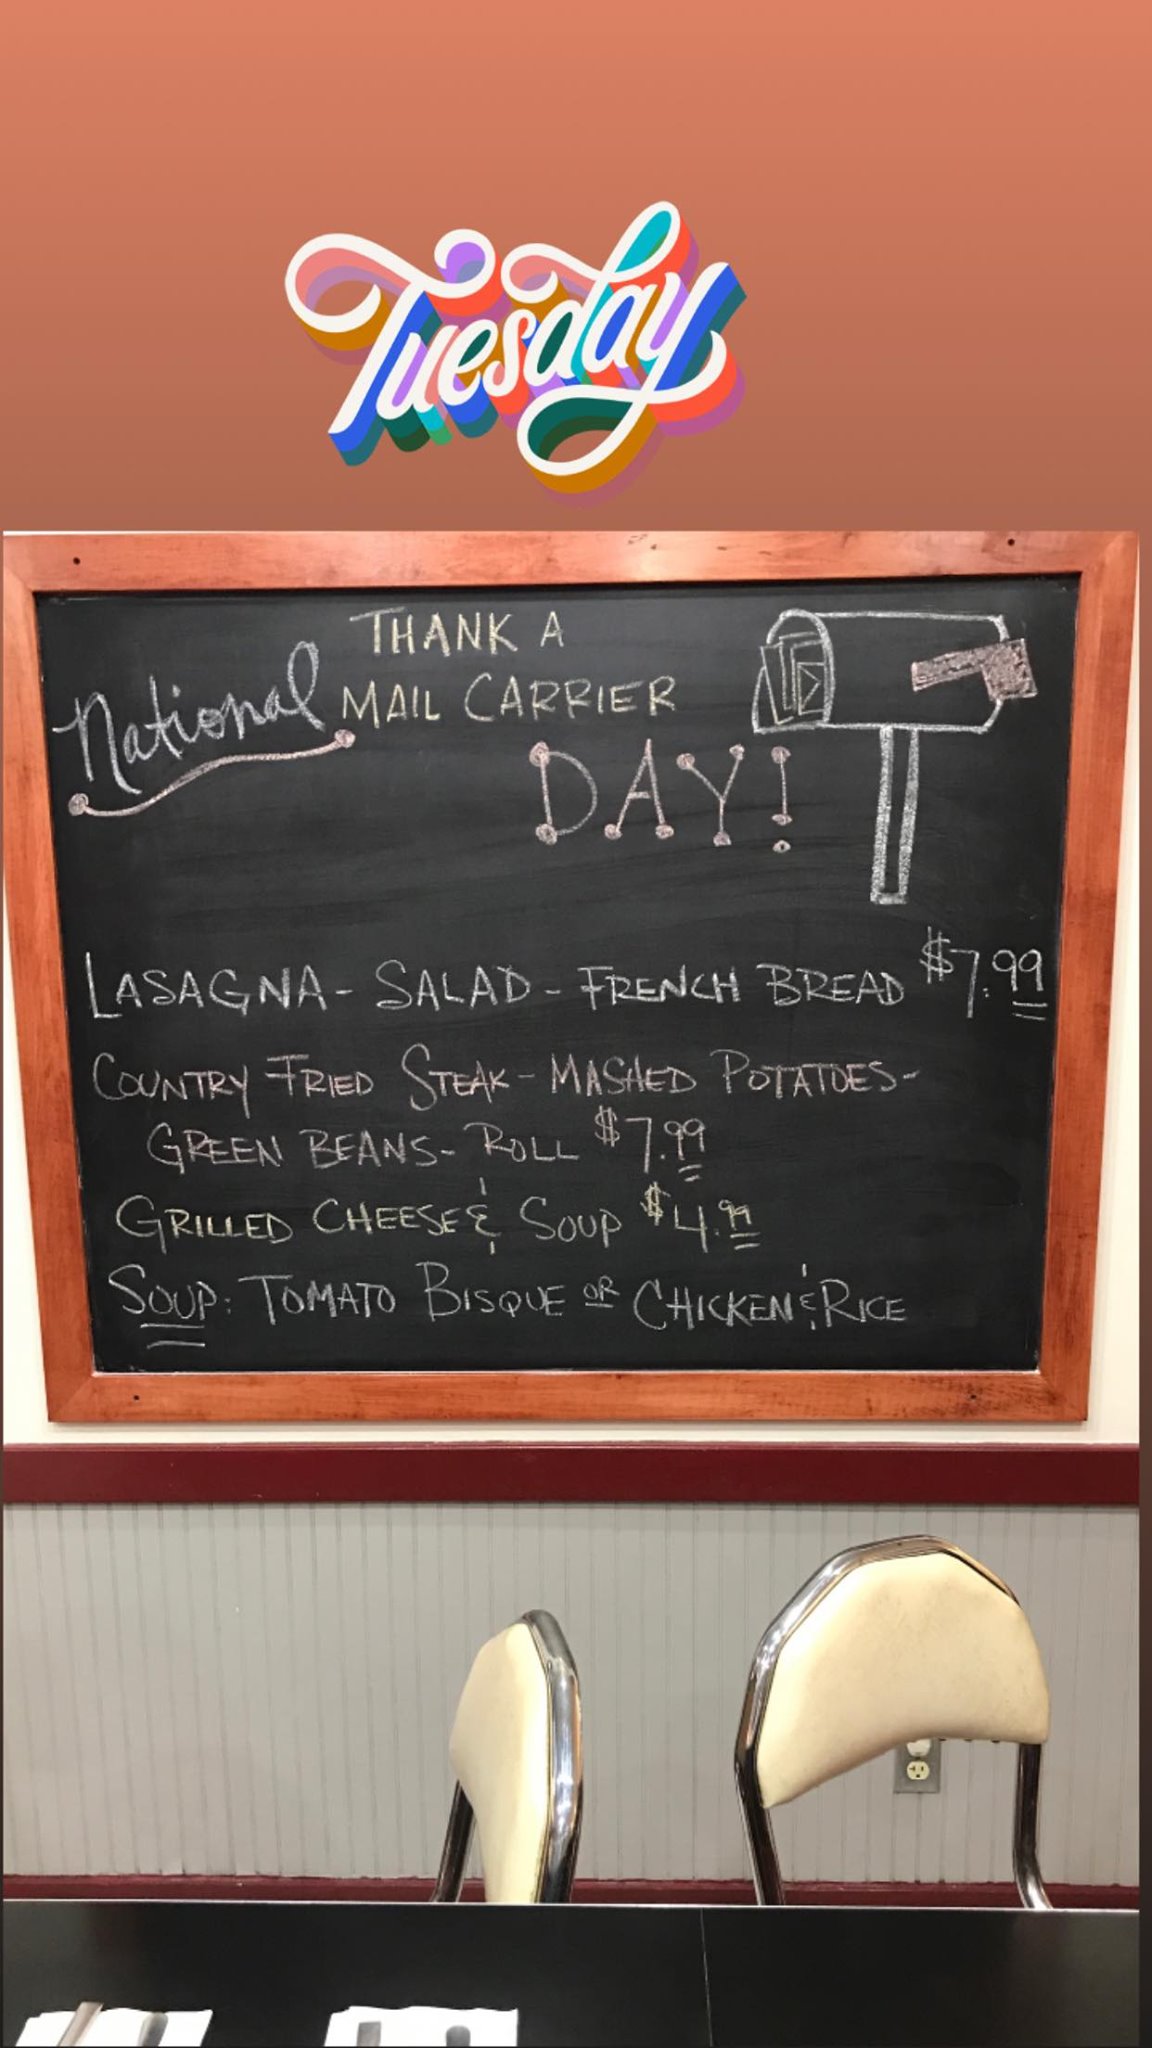 Tuesday
National THANK A
MAIL CARRIER
DAY!
LASAGNA - SALAD - FRENCH BREAD $7.99
COUNTRY FRIED STEAK - MASHED POTATOES -
GREEN BEANS - ROLL $7.99
GRILLED CHEESE & SOUP $4.99
SOUP: TOMATO BISQUE OR CHICKEN & RICE